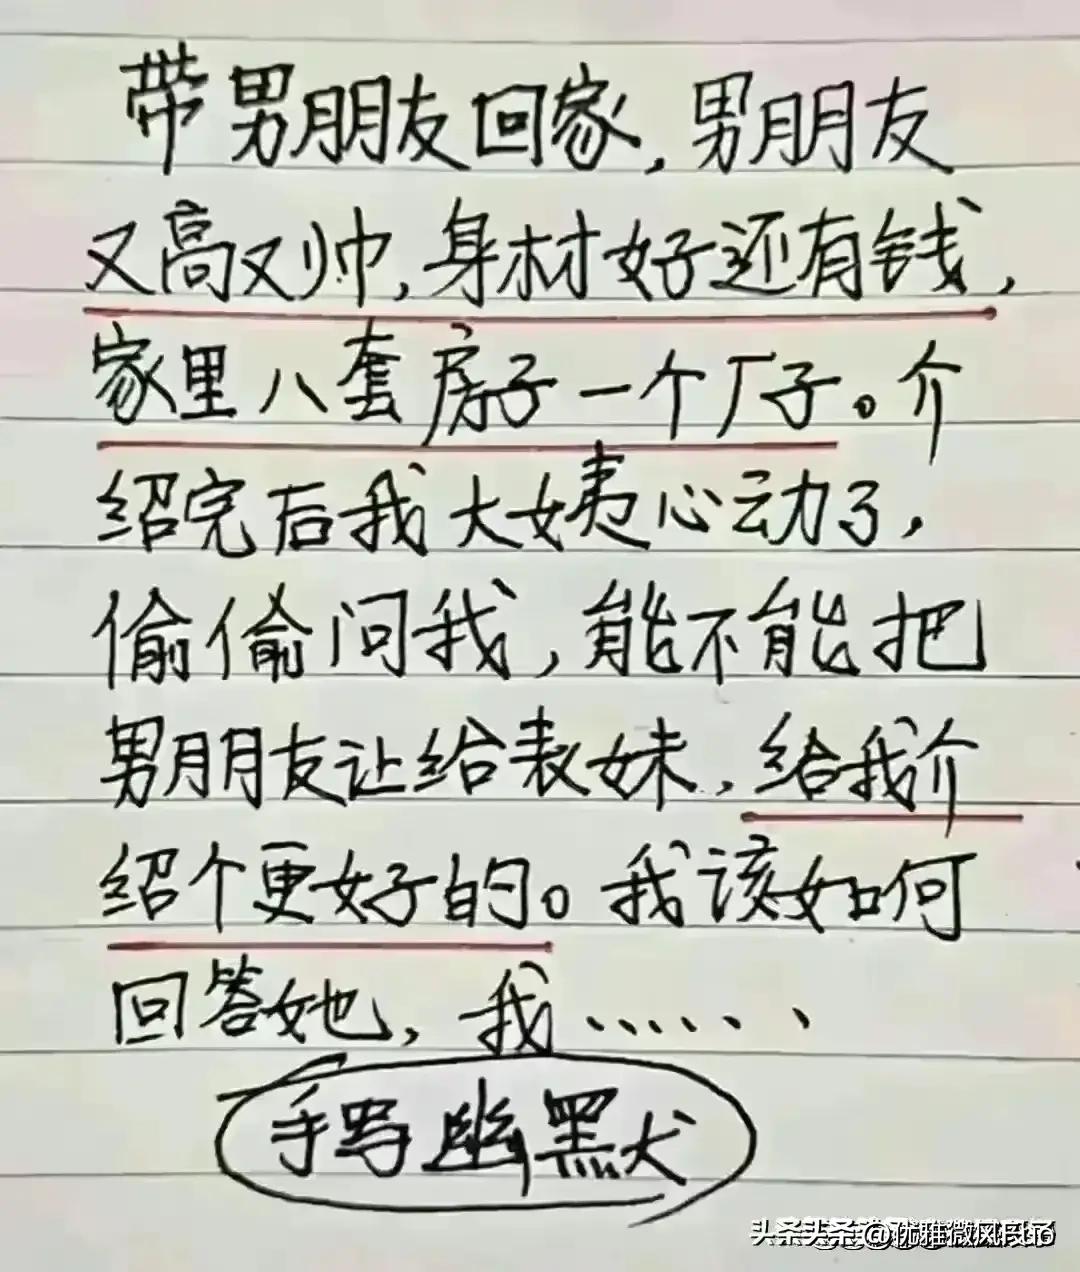 带男朋友回家,男朋友
又高又帅,身材好还有钱,
家里八套房子一个厂子。介
绍完后我大姨心动了,
偷偷问我,能不能把
男朋友让给表妹,给我介
绍个更好的。我该如何
回答她,我......
手写幽默
头条 @优雅微风